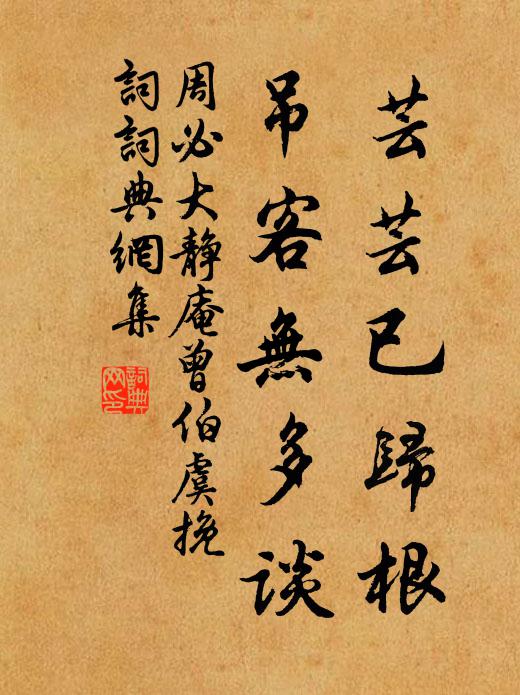 芸芸已歸根
吊客無多談
周必大靜庵曾伯虞挽
詞詞典網集
詞典網印